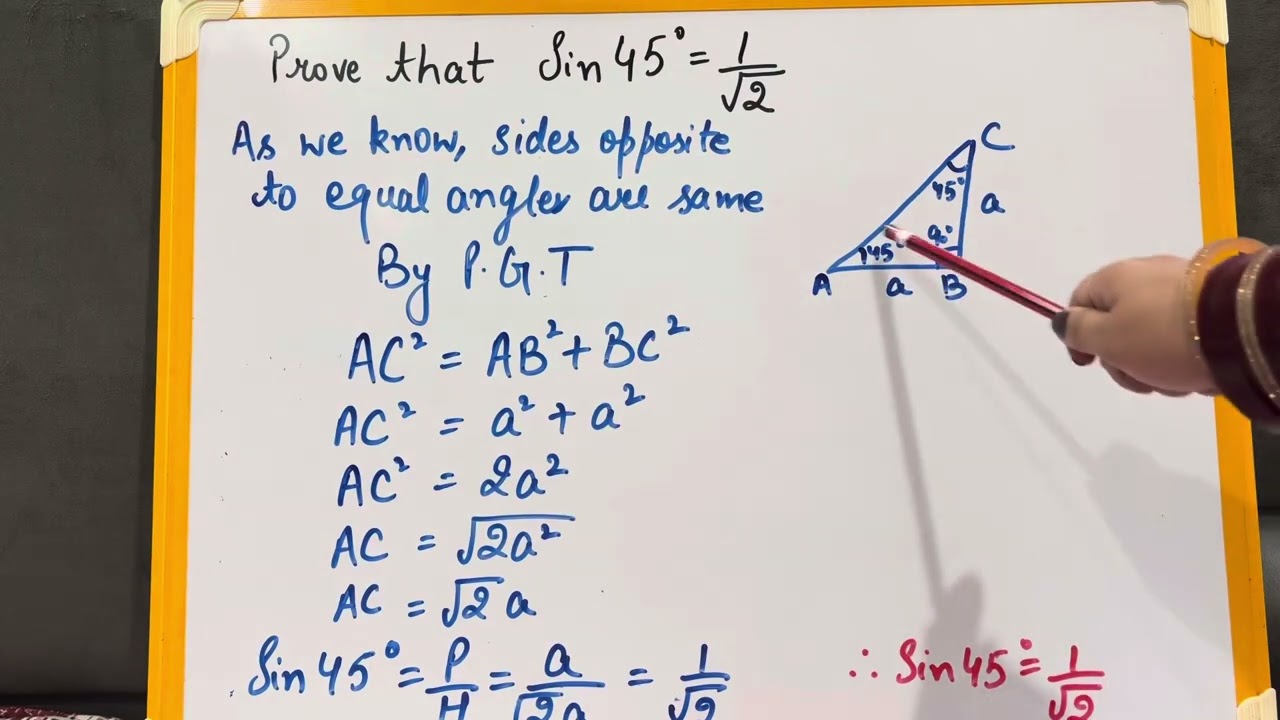 Prove that Sin 45° = 1/√2
As we know, sides opposite
to equal angles are same
By P.G.T
AC² = AB² + BC²
AC² = a² + a²
AC² = 2a²
AC = √2a²
AC = √2 a
Sin 45° = P/H = a/√2a = 1/√2
∴ Sin 45° = 1/√2
C
45°
a
90°
45°
A
a
B